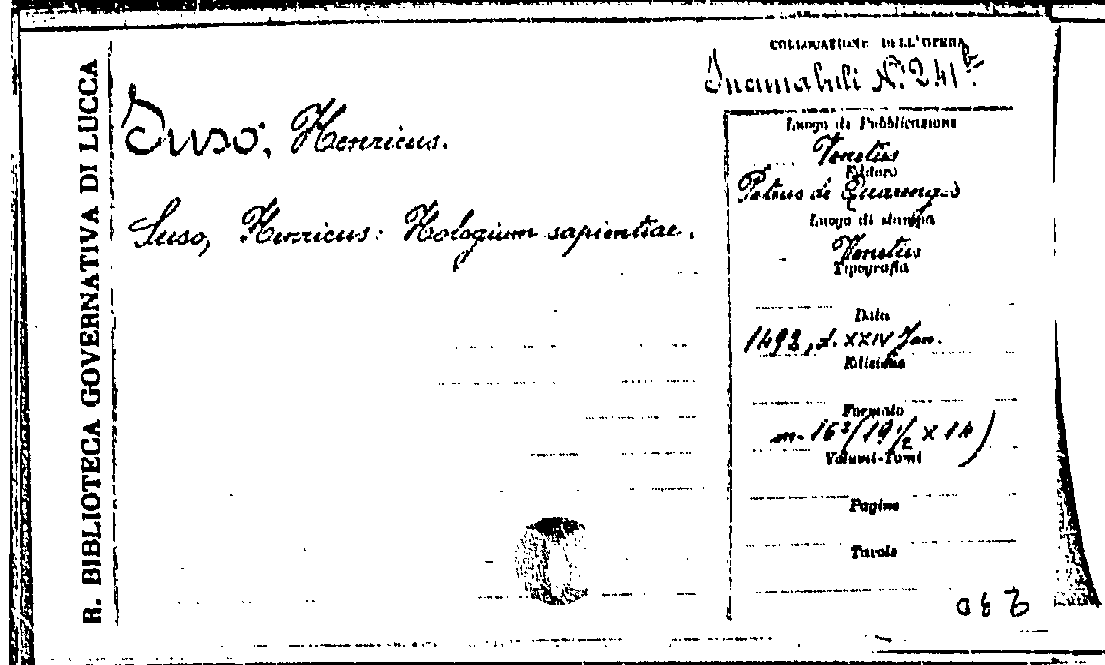 R. BIBLIOTECA GOVERNATIVA DI LUCCA
COLLOCAZIONE DELL'OPERA
Incunabuli N. 241 b.
Suso, Henricus.
Suso, Henricus: Hologium sapientiae.
Luogo di Pubblicazione
Venetiis
Editore
Petrus de Quarengis
Luogo di stampa
Venetiis
Tipografia
Data
1492, d. XXIV Jan.
Edizione
Formato
in-16° (19 1/2 x 14)
Volumi-Tomi
Pagine
Tavole